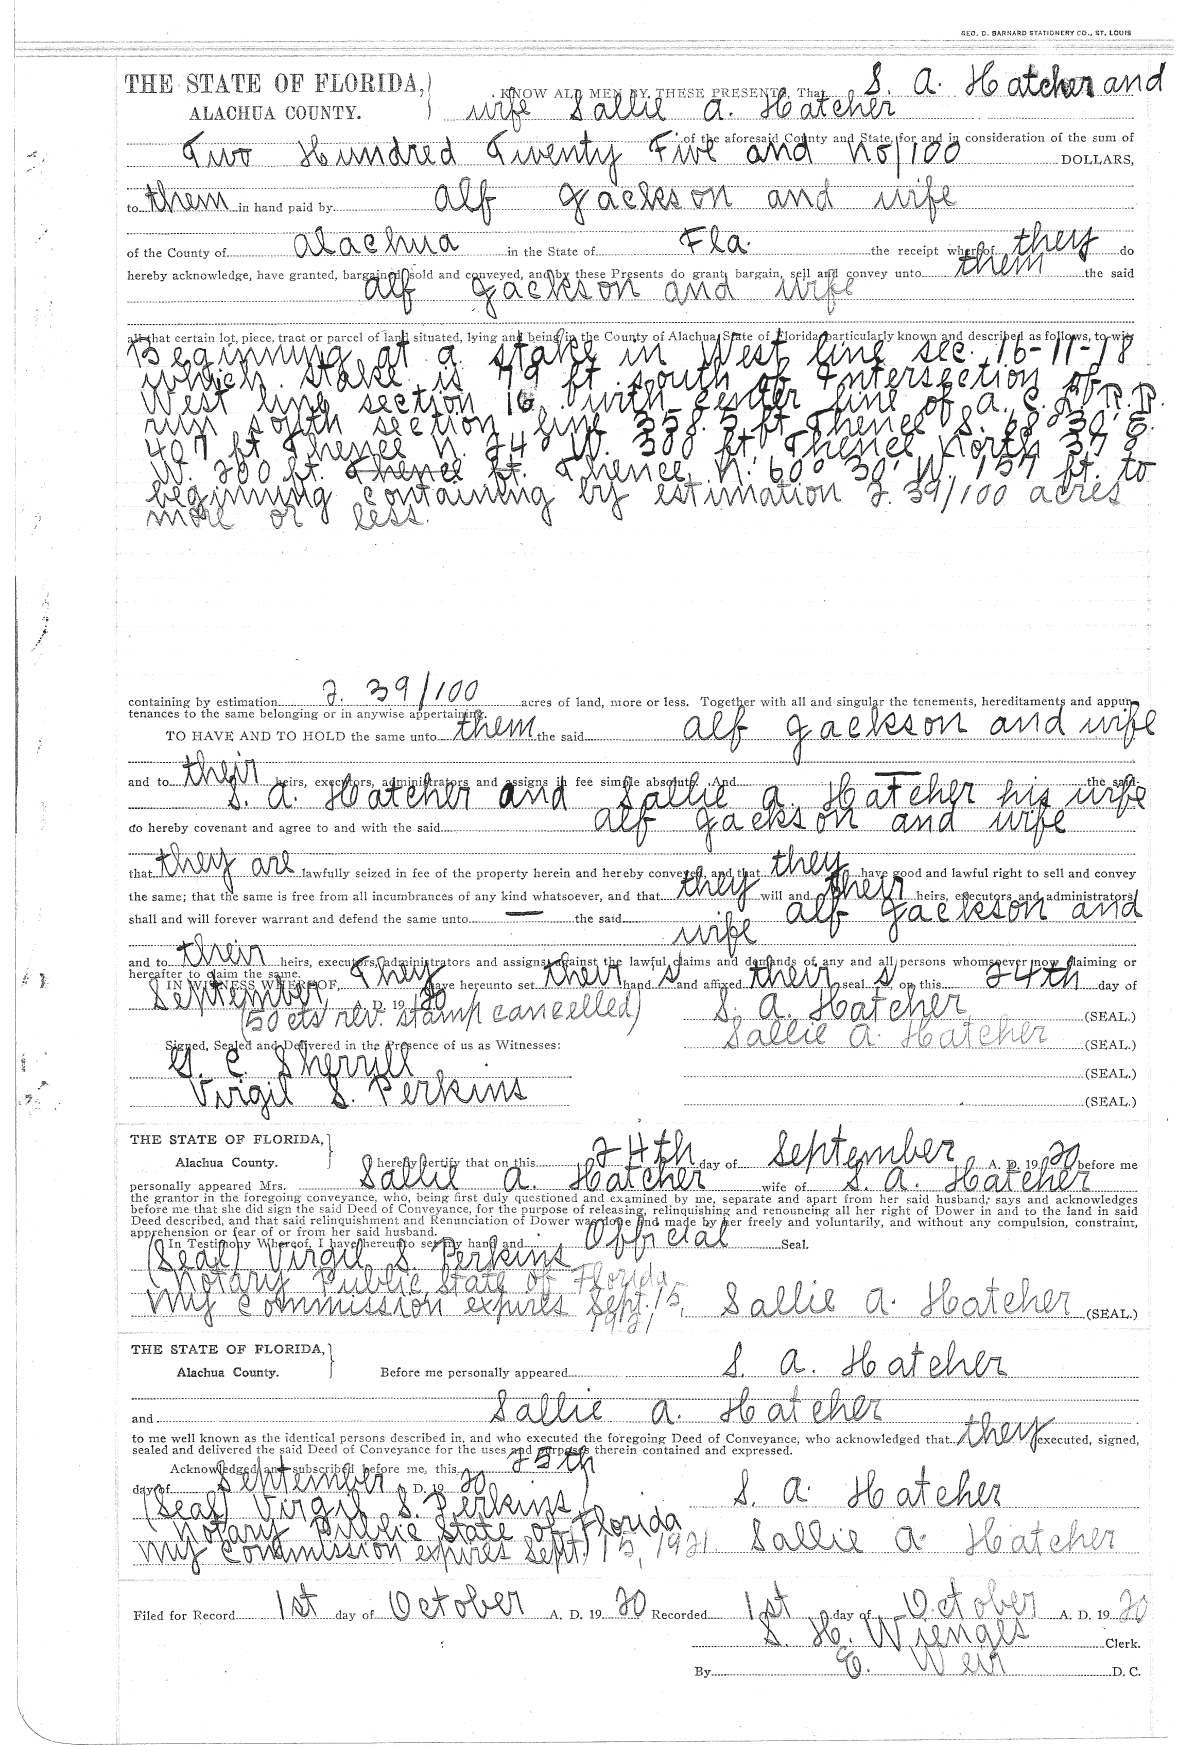 GEO. D. BARNARD STATIONERY CO., ST. LOUIS
THE STATE OF FLORIDA, KNOW ALL MEN BY THESE PRESENTS, That S. A. Hatcher and
ALACHUA COUNTY. wife Sallie A. Hatcher
of the aforesaid County and State, for and in consideration of the sum of
Two Hundred Twenty Five and no/100 DOLLARS,
to them in hand paid by Alf Jackson and wife
of the County of Alachua in the State of Fla. the receipt whereof they do
hereby acknowledge, have granted, bargained, sold and conveyed, and by these Presents do grant, bargain, sell and convey unto them the said
Alf Jackson and wife
all that certain lot, piece, tract or parcel of land situated, lying and being in the County of Alachua, State of Florida, particularly known and described as follows, to-wit:
Beginning at a stake in West line sec. 16-11-18
which stake is 79 ft. south of Intersection of
West line section 16, with center line of A. C. L. R.R.
run south section line 358.5 ft Thence S. 68° 30' E.
407 ft Thence N. 24° W. 388 ft. Thence North 37 8
W. 200 ft. Thence ft. Thence N. 60° 30' W. 157 ft. to
beginning containing by estimation 2.39/100 acres
more or less.
containing by estimation 2. 39/100 acres of land, more or less. Together with all and singular the tenements, hereditaments and appur-
tenances to the same belonging or in anywise appertaining.
TO HAVE AND TO HOLD the same unto them the said Alf Jackson and wife
and to their heirs, executors, administrators and assigns in fee simple absolute. And — the said
S. A. Hatcher and Sallie A. Hatcher his wife
do hereby covenant and agree to and with the said Alf Jackson and wife
that they are lawfully seized in fee of the property herein and hereby conveyed, and that they have good and lawful right to sell and convey
the same; that the same is free from all incumbrances of any kind whatsoever, and that they will and their heirs, executors and administrators
shall and will forever warrant and defend the same unto — the said Alf Jackson and
wife
and to their heirs, executors, administrators and assigns against the lawful claims and demands of any and all persons whomsoever now claiming or
hereafter to claim the same.
IN WITNESS WHEREOF, They have hereunto set their hand s and affixed their seal s on this 24th day of
September, A. D. 19 20
(50 cts rev. stamp cancelled) S. A. Hatcher (SEAL.)
Sallie A. Hatcher (SEAL.)
Signed, Sealed and Delivered in the Presence of us as Witnesses:
G. C. Sherrill (SEAL.)
Virgil S. Perkins (SEAL.)
THE STATE OF FLORIDA,
Alachua County. I hereby certify that on this 24th day of September A. D. 19 20 before me
personally appeared Mrs. Sallie A. Hatcher wife of S. A. Hatcher
the grantor in the foregoing conveyance, who, being first duly questioned and examined by me, separate and apart from her said husband, says and acknowledges
before me that she did sign the said Deed of Conveyance, for the purpose of releasing, relinquishing and renouncing all her right of Dower in and to the land in said
Deed described, and that said relinquishment and Renunciation of Dower was done and made by her freely and voluntarily, and without any compulsion, constraint,
apprehension or fear of or from her said husband.
In Testimony Whereof, I have hereunto set my hand and Official Seal.
(Seal) Virgil S. Perkins
Notary Public, State of Florida
My Commission expires Sept. 15, 1921 Sallie A. Hatcher (SEAL.)
THE STATE OF FLORIDA,
Alachua County. Before me personally appeared S. A. Hatcher
and Sallie A. Hatcher
to me well known as the identical persons described in, and who executed the foregoing Deed of Conveyance, who acknowledged that they executed, signed,
sealed and delivered the said Deed of Conveyance for the uses and purposes therein contained and expressed.
Acknowledged and subscribed before me, this 25th
day of September A. D. 19 20
(Seal) Virgil S. Perkins S. A. Hatcher
Notary Public State of Florida
My Commission expires Sept. 15, 1921. Sallie A. Hatcher
Filed for Record 1st day of October A. D. 19 20 Recorded 1st day of October A. D. 19 20
S. H. Wienges Clerk.
By E. Weir D. C.